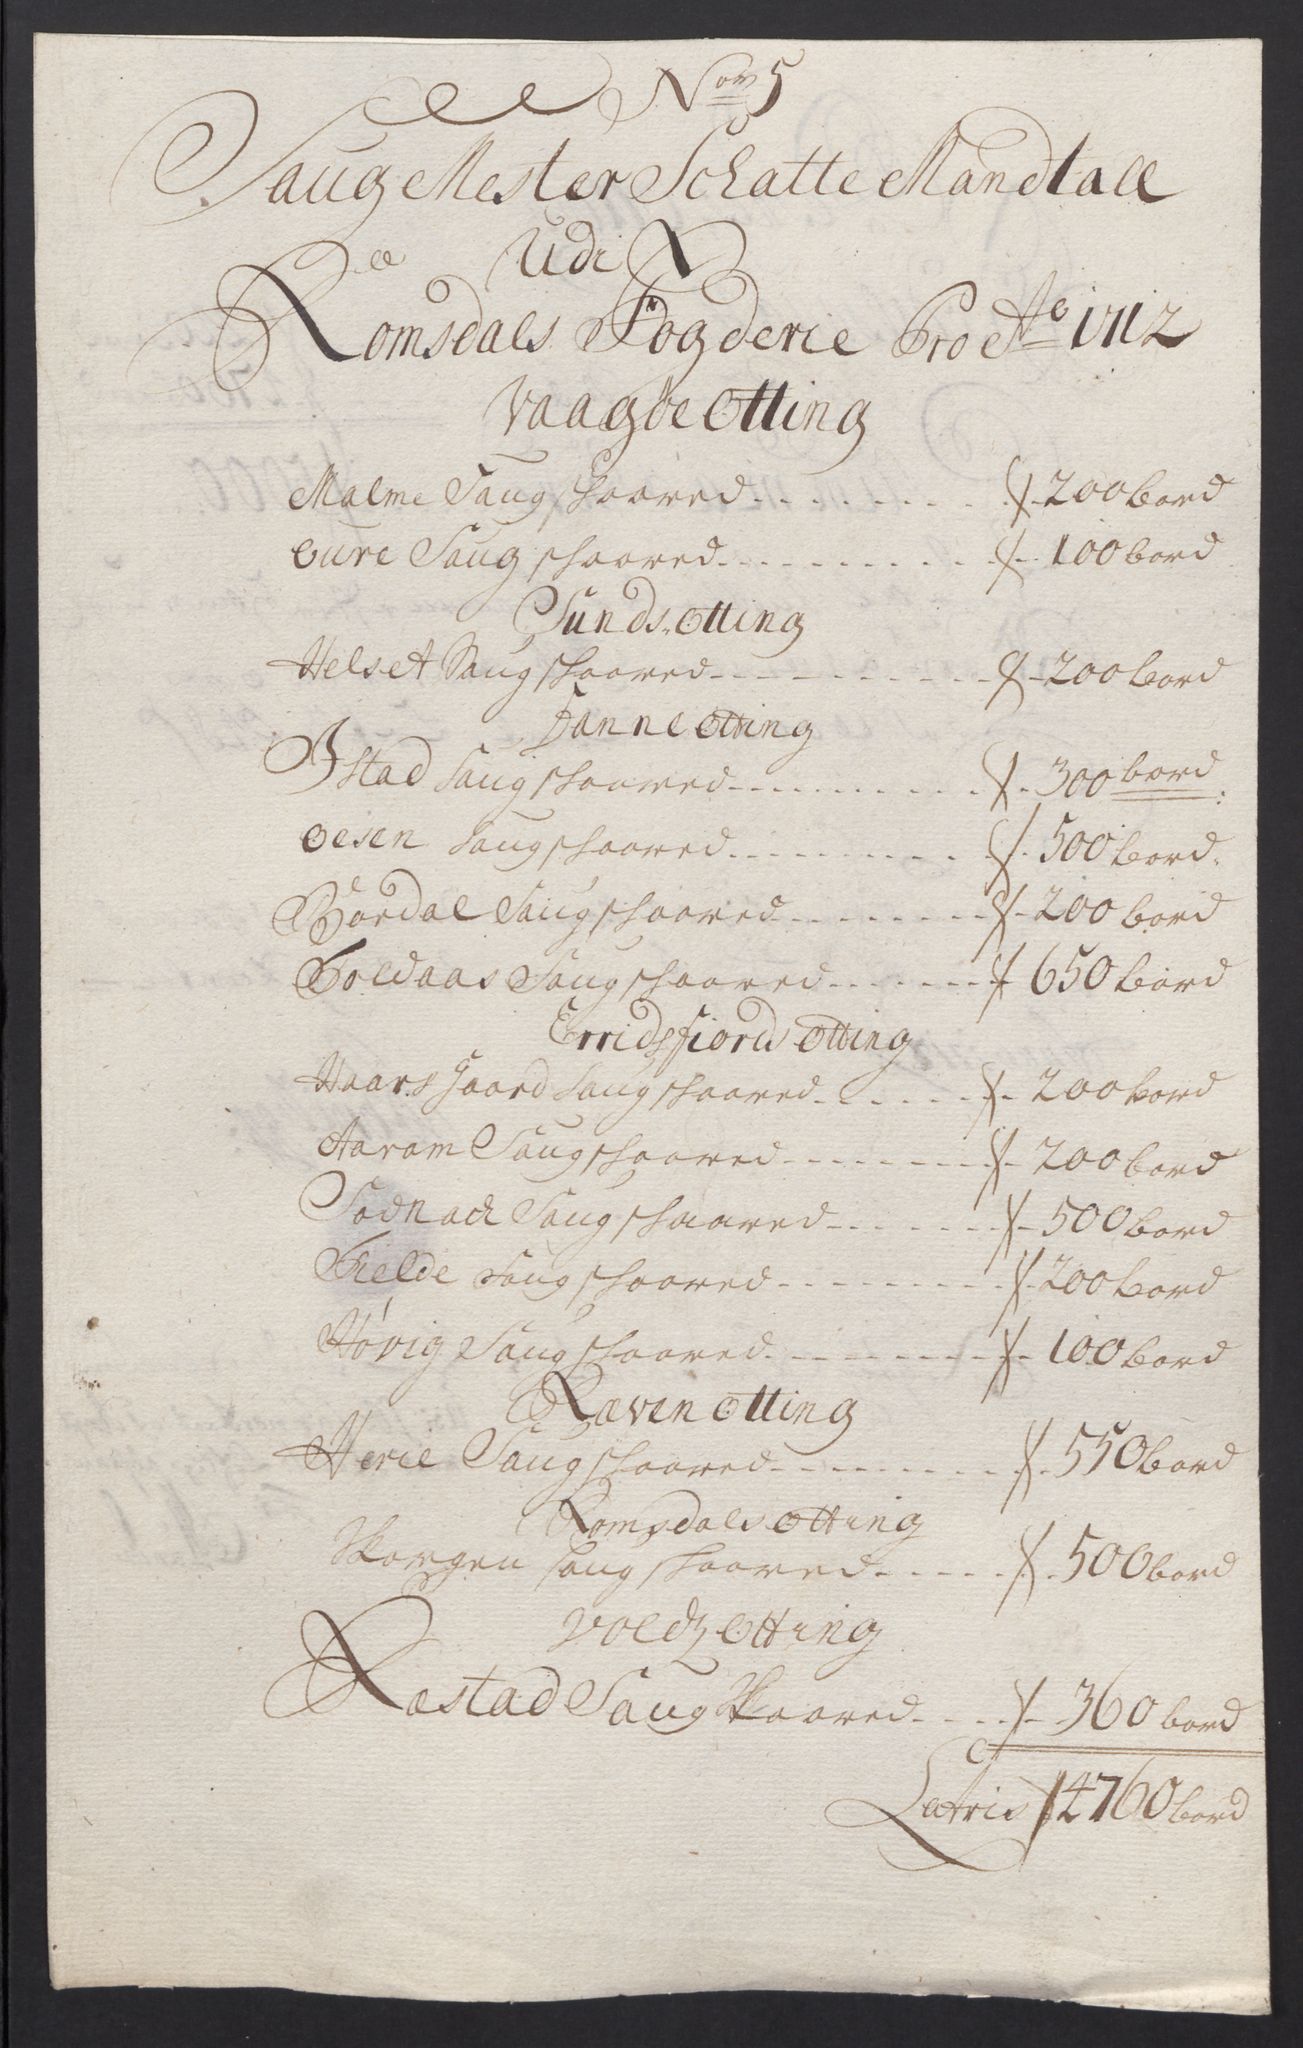 No 5
Saug Mester Schatte Mandtall
Udi
Romsdals Fogderie Pro Ao 1712
Vaagøe Otting
Malme Saug skaared - 200 bord
Eure Saug skaared - 100 bord
Sunds Otting
Helset Saug skaared - 200 bord
Fanne Otting
Istad Saug skaared - 300 bord
Oesen Saug skaared - 500 bord
Hordal Saug skaared - 200 bord
Toldaas Saug skaared - 650 bord
Erridsfiords Otting
Haarsgaard Saug skaared - 200 bord
Aaram Saug skaared - 200 bord
Sødnack Saug skaared - 500 bord
Fielde Saug skaared - 200 bord
Høvig Saug skaared - 100 bord
Ræven Otting
Herie Saug skaared - 550 bord
Romsdals Otting
Skorgen Saug skaared - 500 bord
Voldz Otting
Ræstad Saug Skaared - 360 bord
Lattris 4760 bord